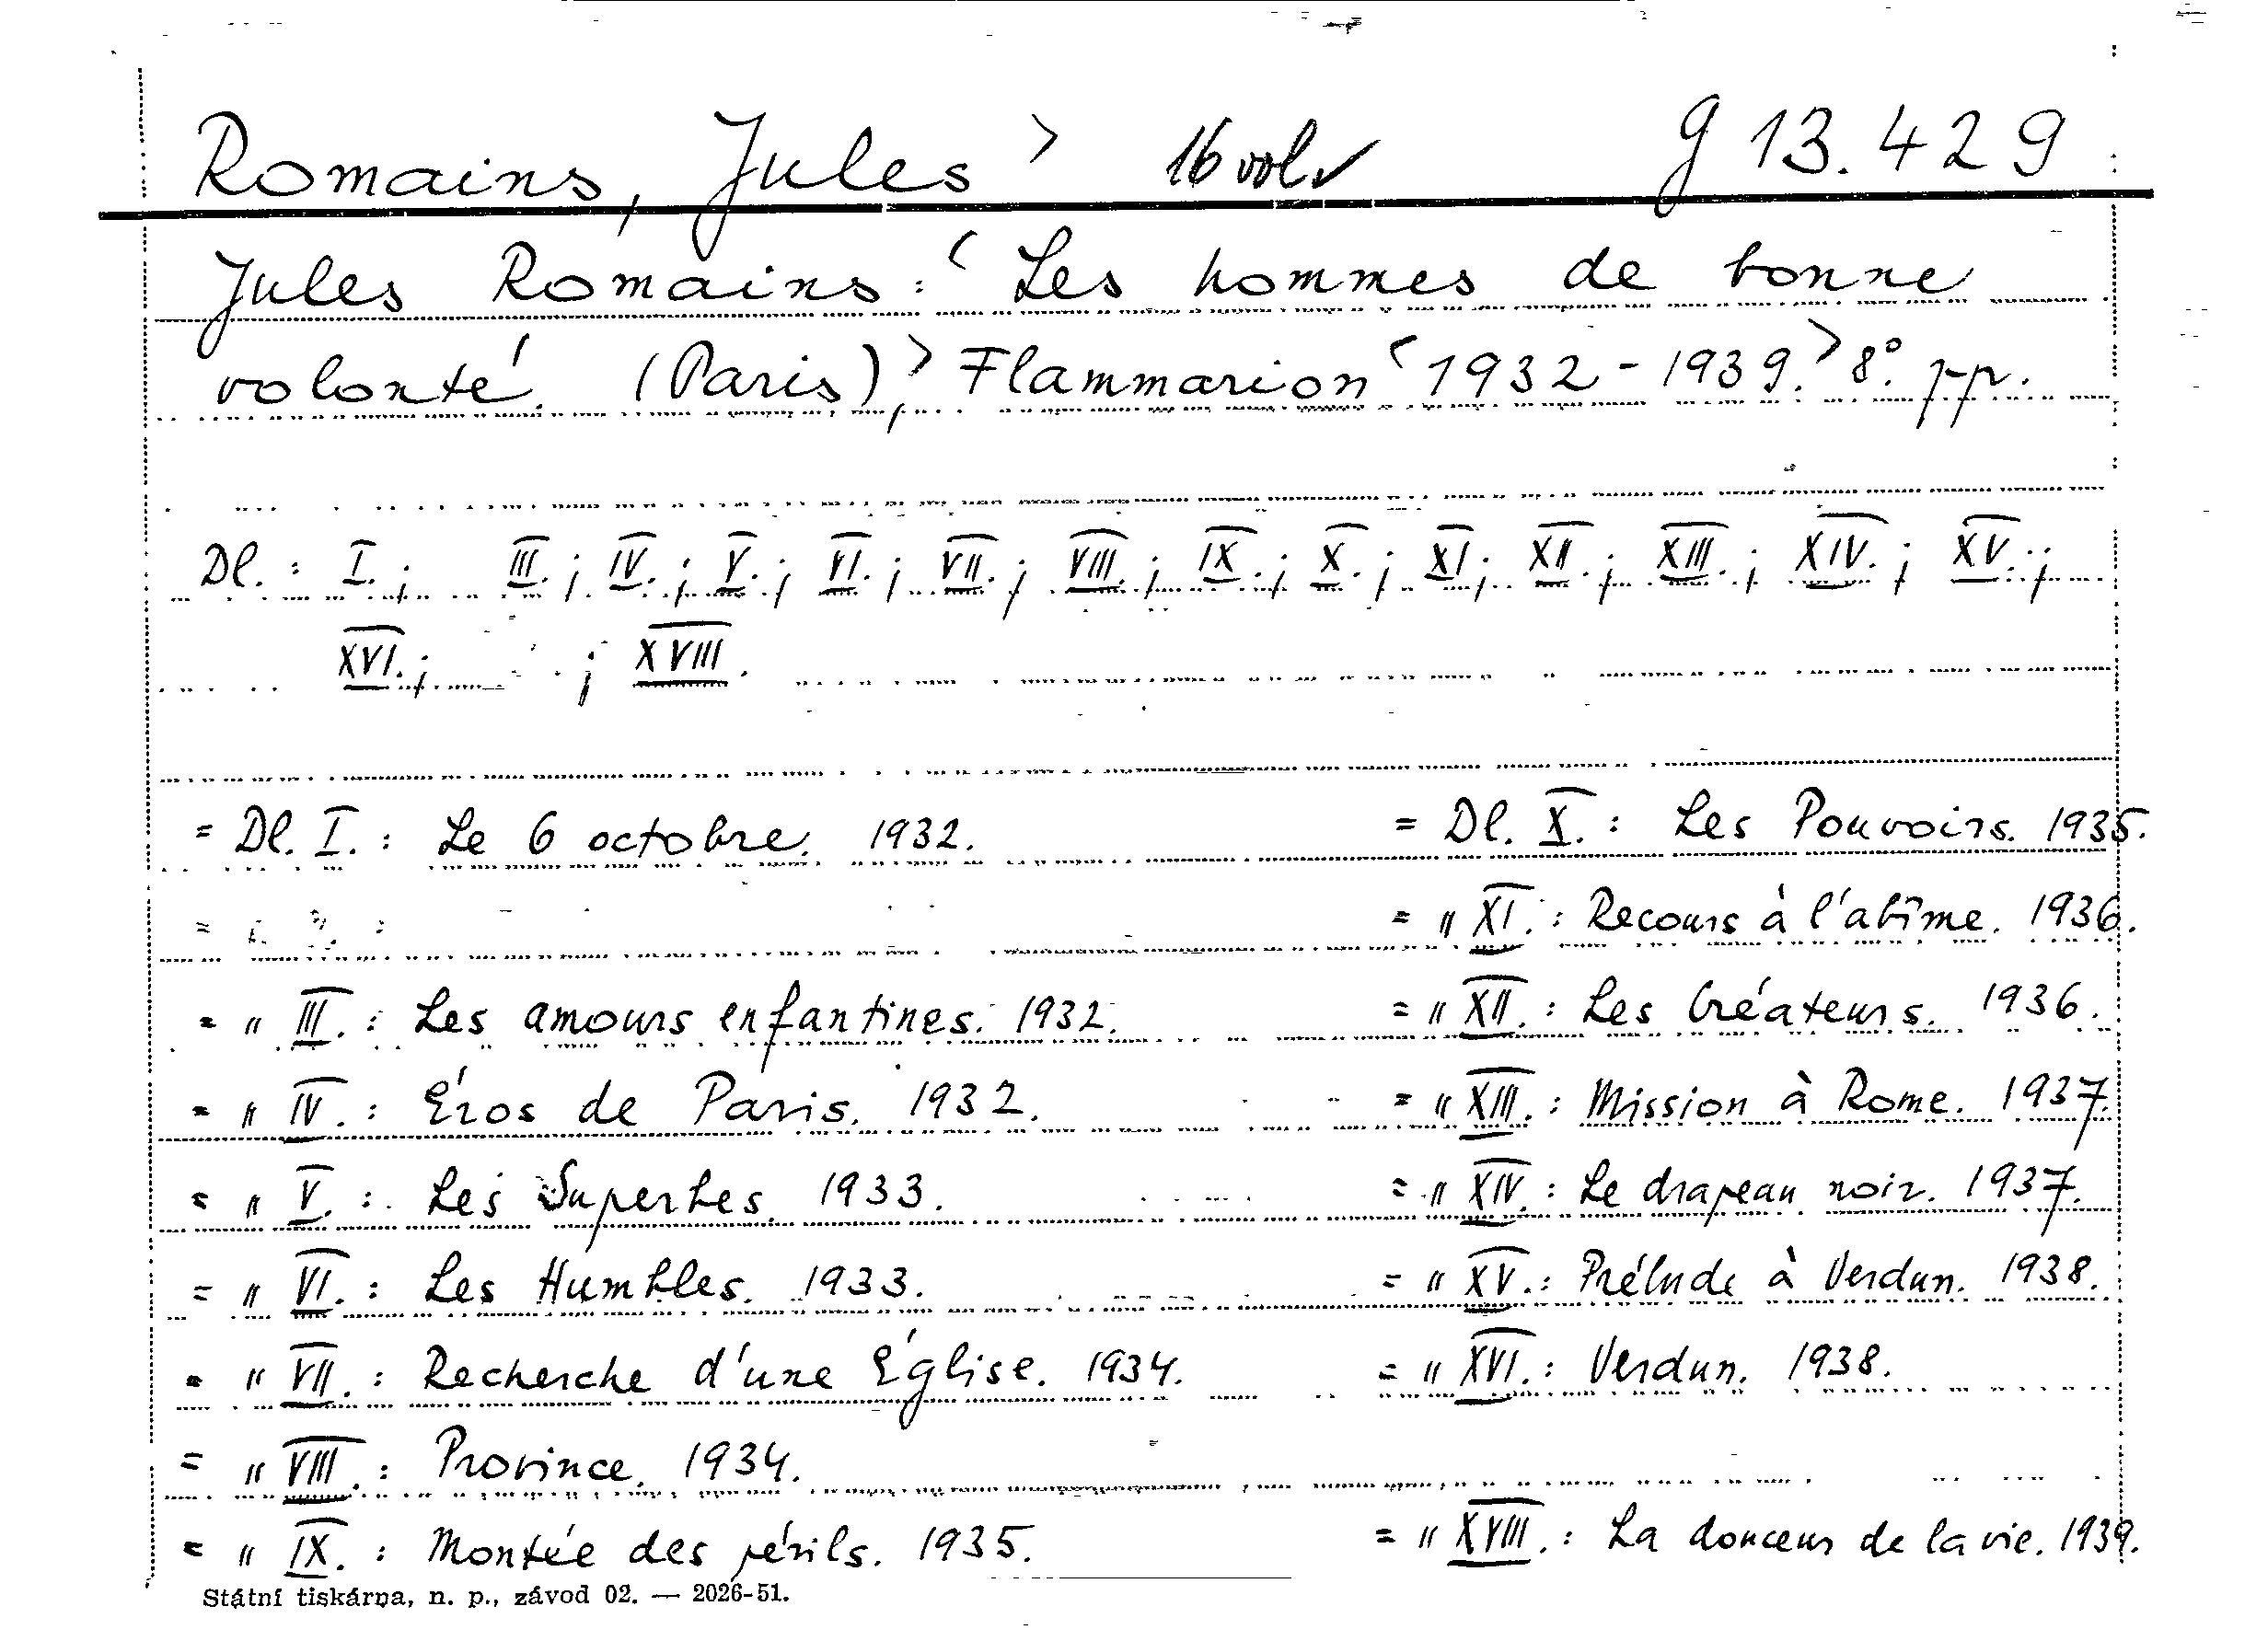 Romains, Jules > 16 vol. g 13.429
Jules Romains: < Les hommes de bonne
volonté. (Paris), > Flammarion < 1932 - 1939. > 8°. pp.
Dl.: I.; III.; IV.; V.; VI.; VII.; VIII.; IX.; X.; XI.; XII.; XIII.; XIV.; XV.;
XVI.; ; XVIII.
= Dl. I.: Le 6 octobre. 1932.
= " III.: Les amours enfantines. 1932.
= " IV.: Éros de Paris. 1932.
= " V.: Les Superbes. 1933.
= " VI.: Les Humbles. 1933.
= " VII.: Recherche d'une Église. 1934.
= " VIII.: Province. 1934.
= " IX.: Montée des périls. 1935.
= Dl. X.: Les Pouvoirs. 1935.
= " XI.: Recours à l'abîme. 1936.
= " XII.: Les Créateurs. 1936.
= " XIII.: Mission à Rome. 1937.
= " XIV.: Le drapeau noir. 1937.
= " XV.: Prélude à Verdun. 1938.
= " XVI.: Verdun. 1938.
= " XVIII.: La douceur de la vie. 1939.
Státní tiskárna, n. p., závod 02. — 2026-51.